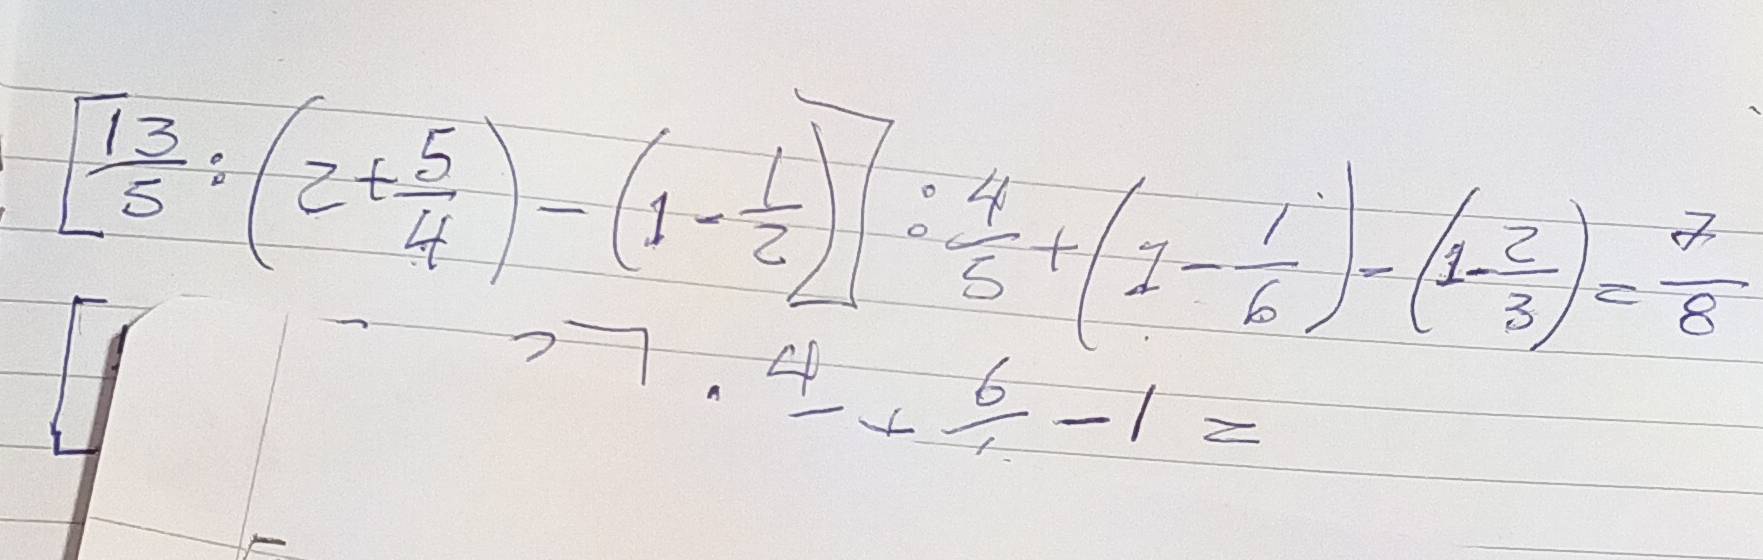 [13/5 : (2 + 5/4) - (1 - 1/2)] : 4/5 + (1 - 1/6) - (1 - 2/3) = 7/8
[ ] . 4 + 6 - 1 =